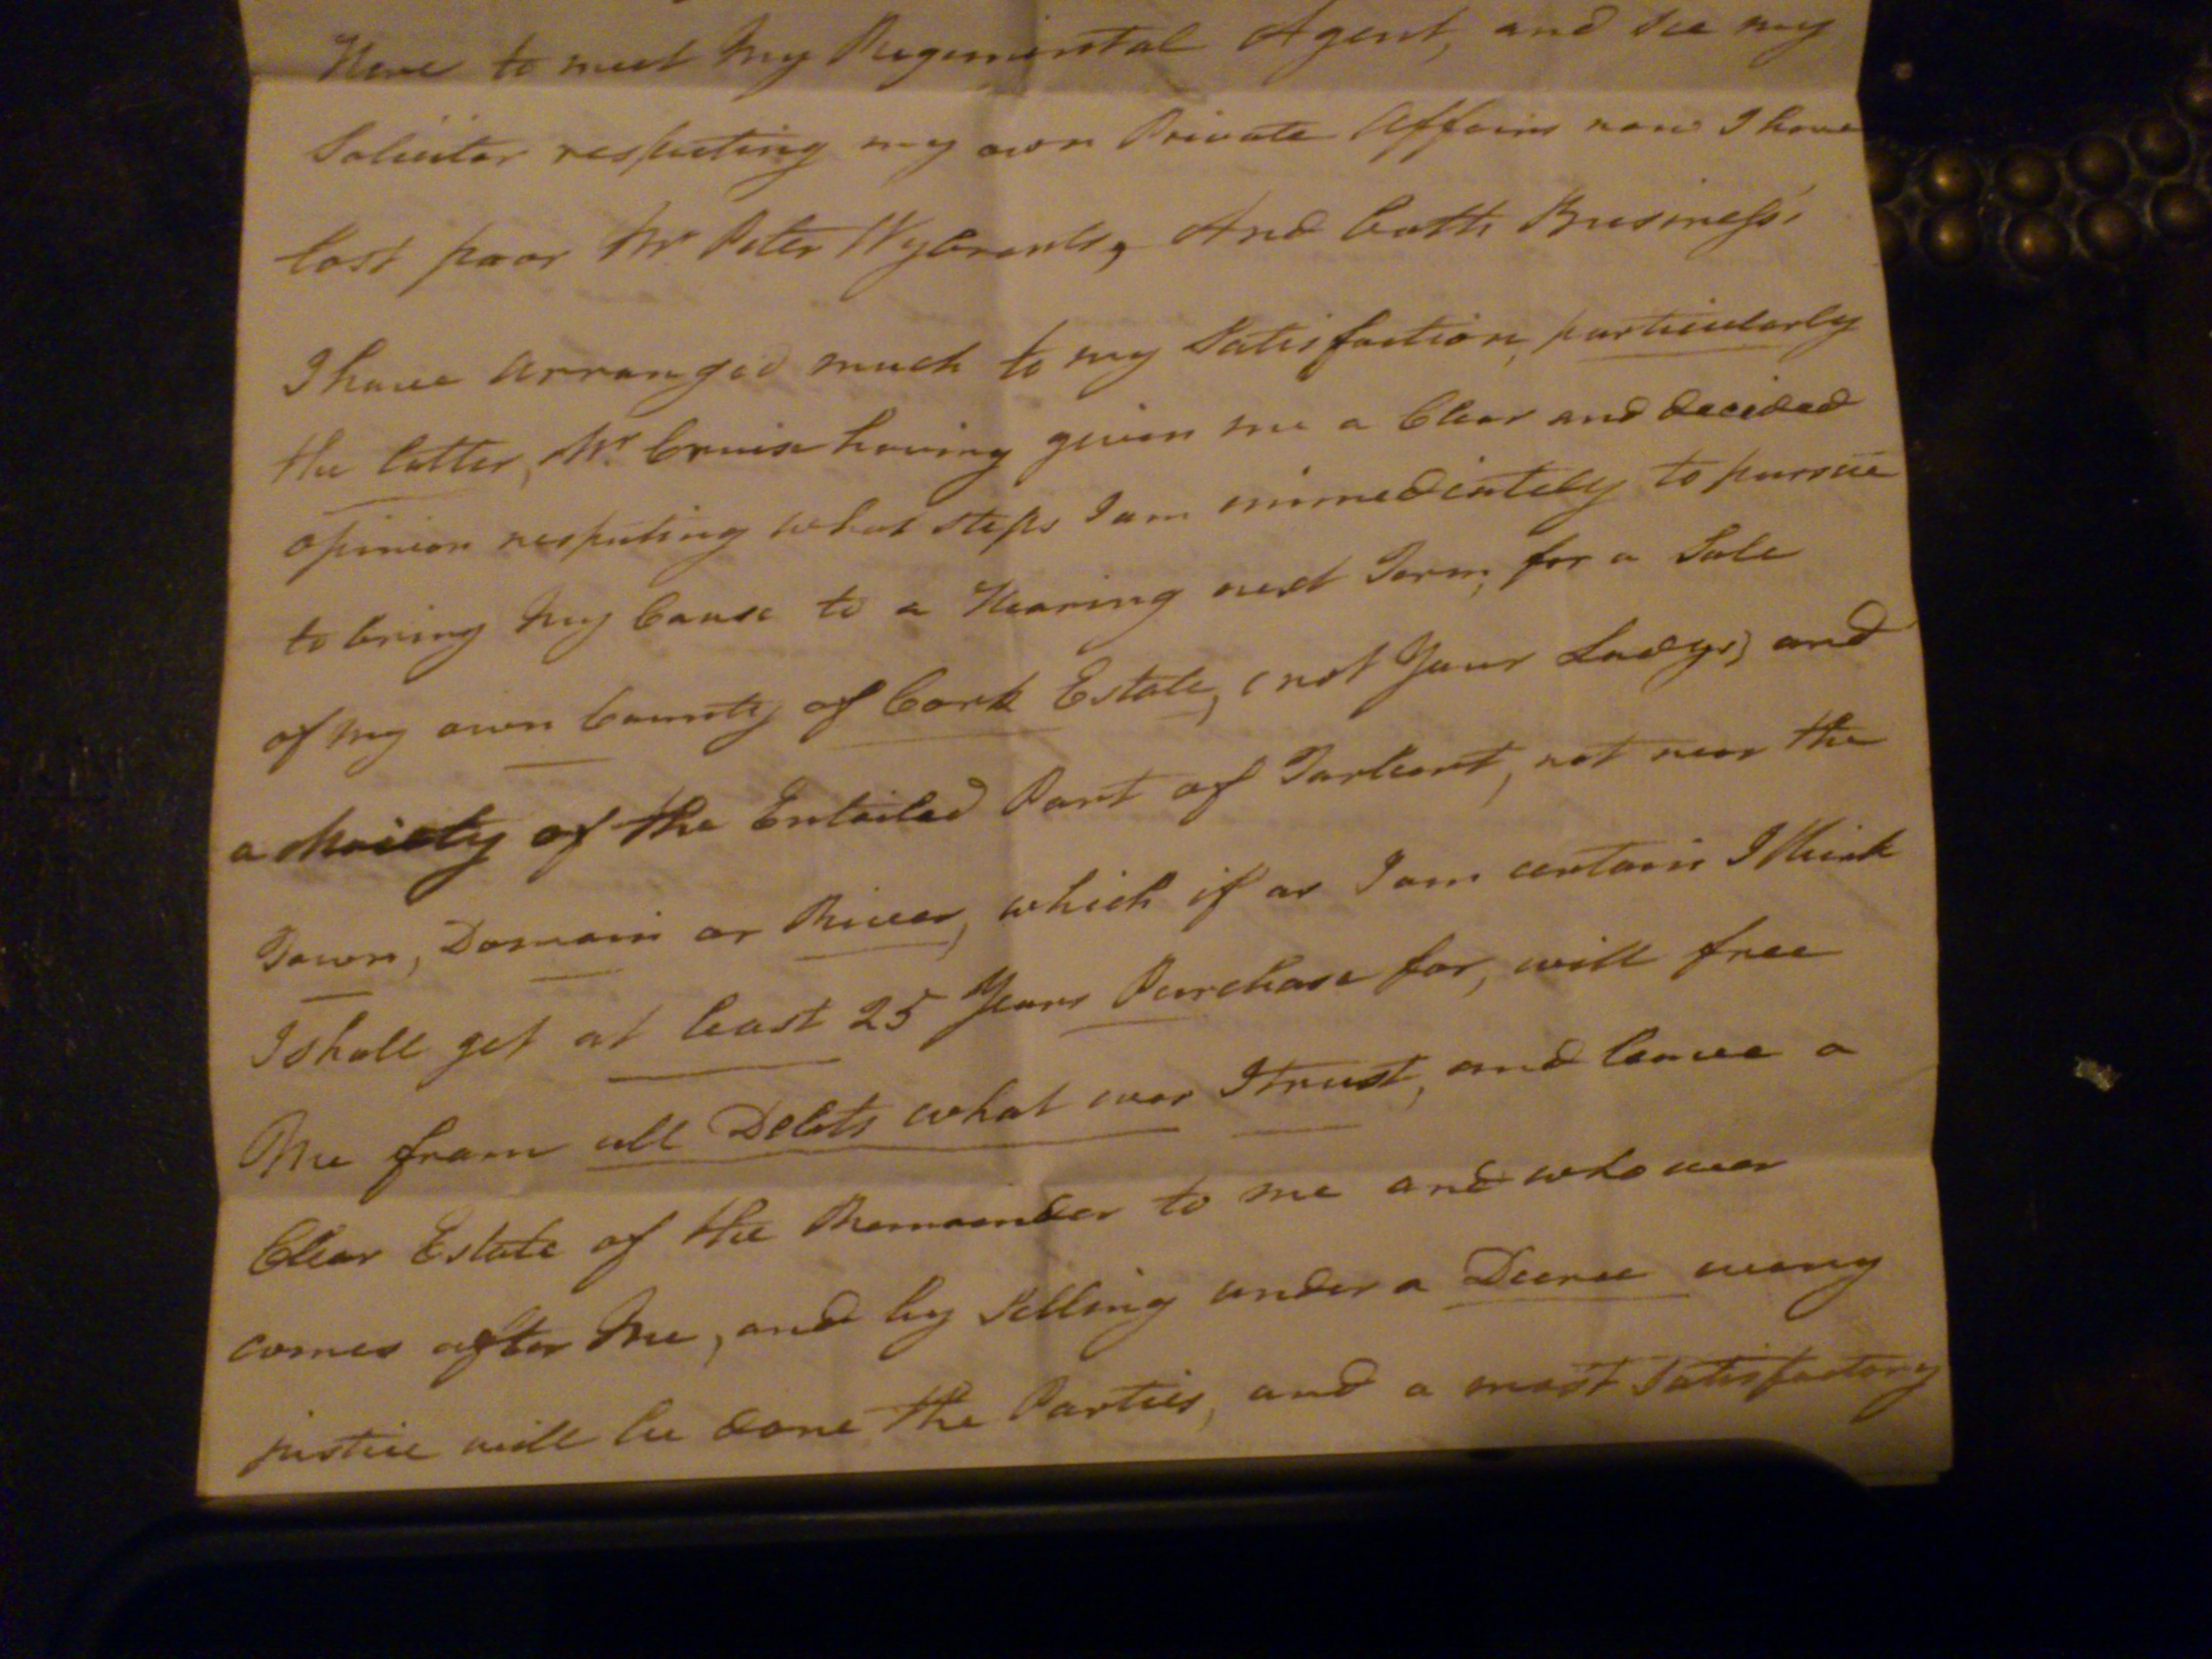 Here to meet My Regimental Agent, and see my
Solicitor respecting my own Private Affairs now I have
lost poor Mr Peter Wybrants, And both Business's
I have arranged much to my Satisfaction, particularly
the latter, Mr Cruise having given me a Clear and decided
opinion respecting what steps I am immediately to pursue
to bring My Cause to a Hearing next Term, for a Sale
of My own County of Cork Estate, (not Your Ladys) and
a Moiety of the Entailed Part of Tarbert, not near the
Town, Domain or River, which if as I am certain I think
I shall get at least 25 Years Purchase for, will free
Me from all Debts what ever I trust, and leave a
Clear Estate of the Remainder to me and who ever
comes after Me, and by Selling under a Decree every
justice will be done the Parties, and a most Satisfactory